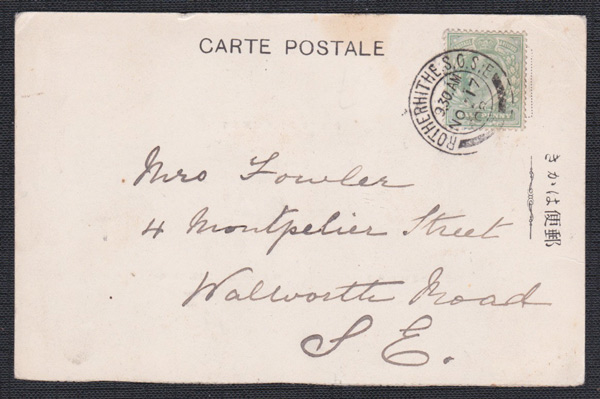 CARTE POSTALE
ROTHERHITHE S.O. S.E
9.30 AM
NO 17
Mrs Fowler
4 Montpelier Street
Walworth Road
S E.
郵便はかき